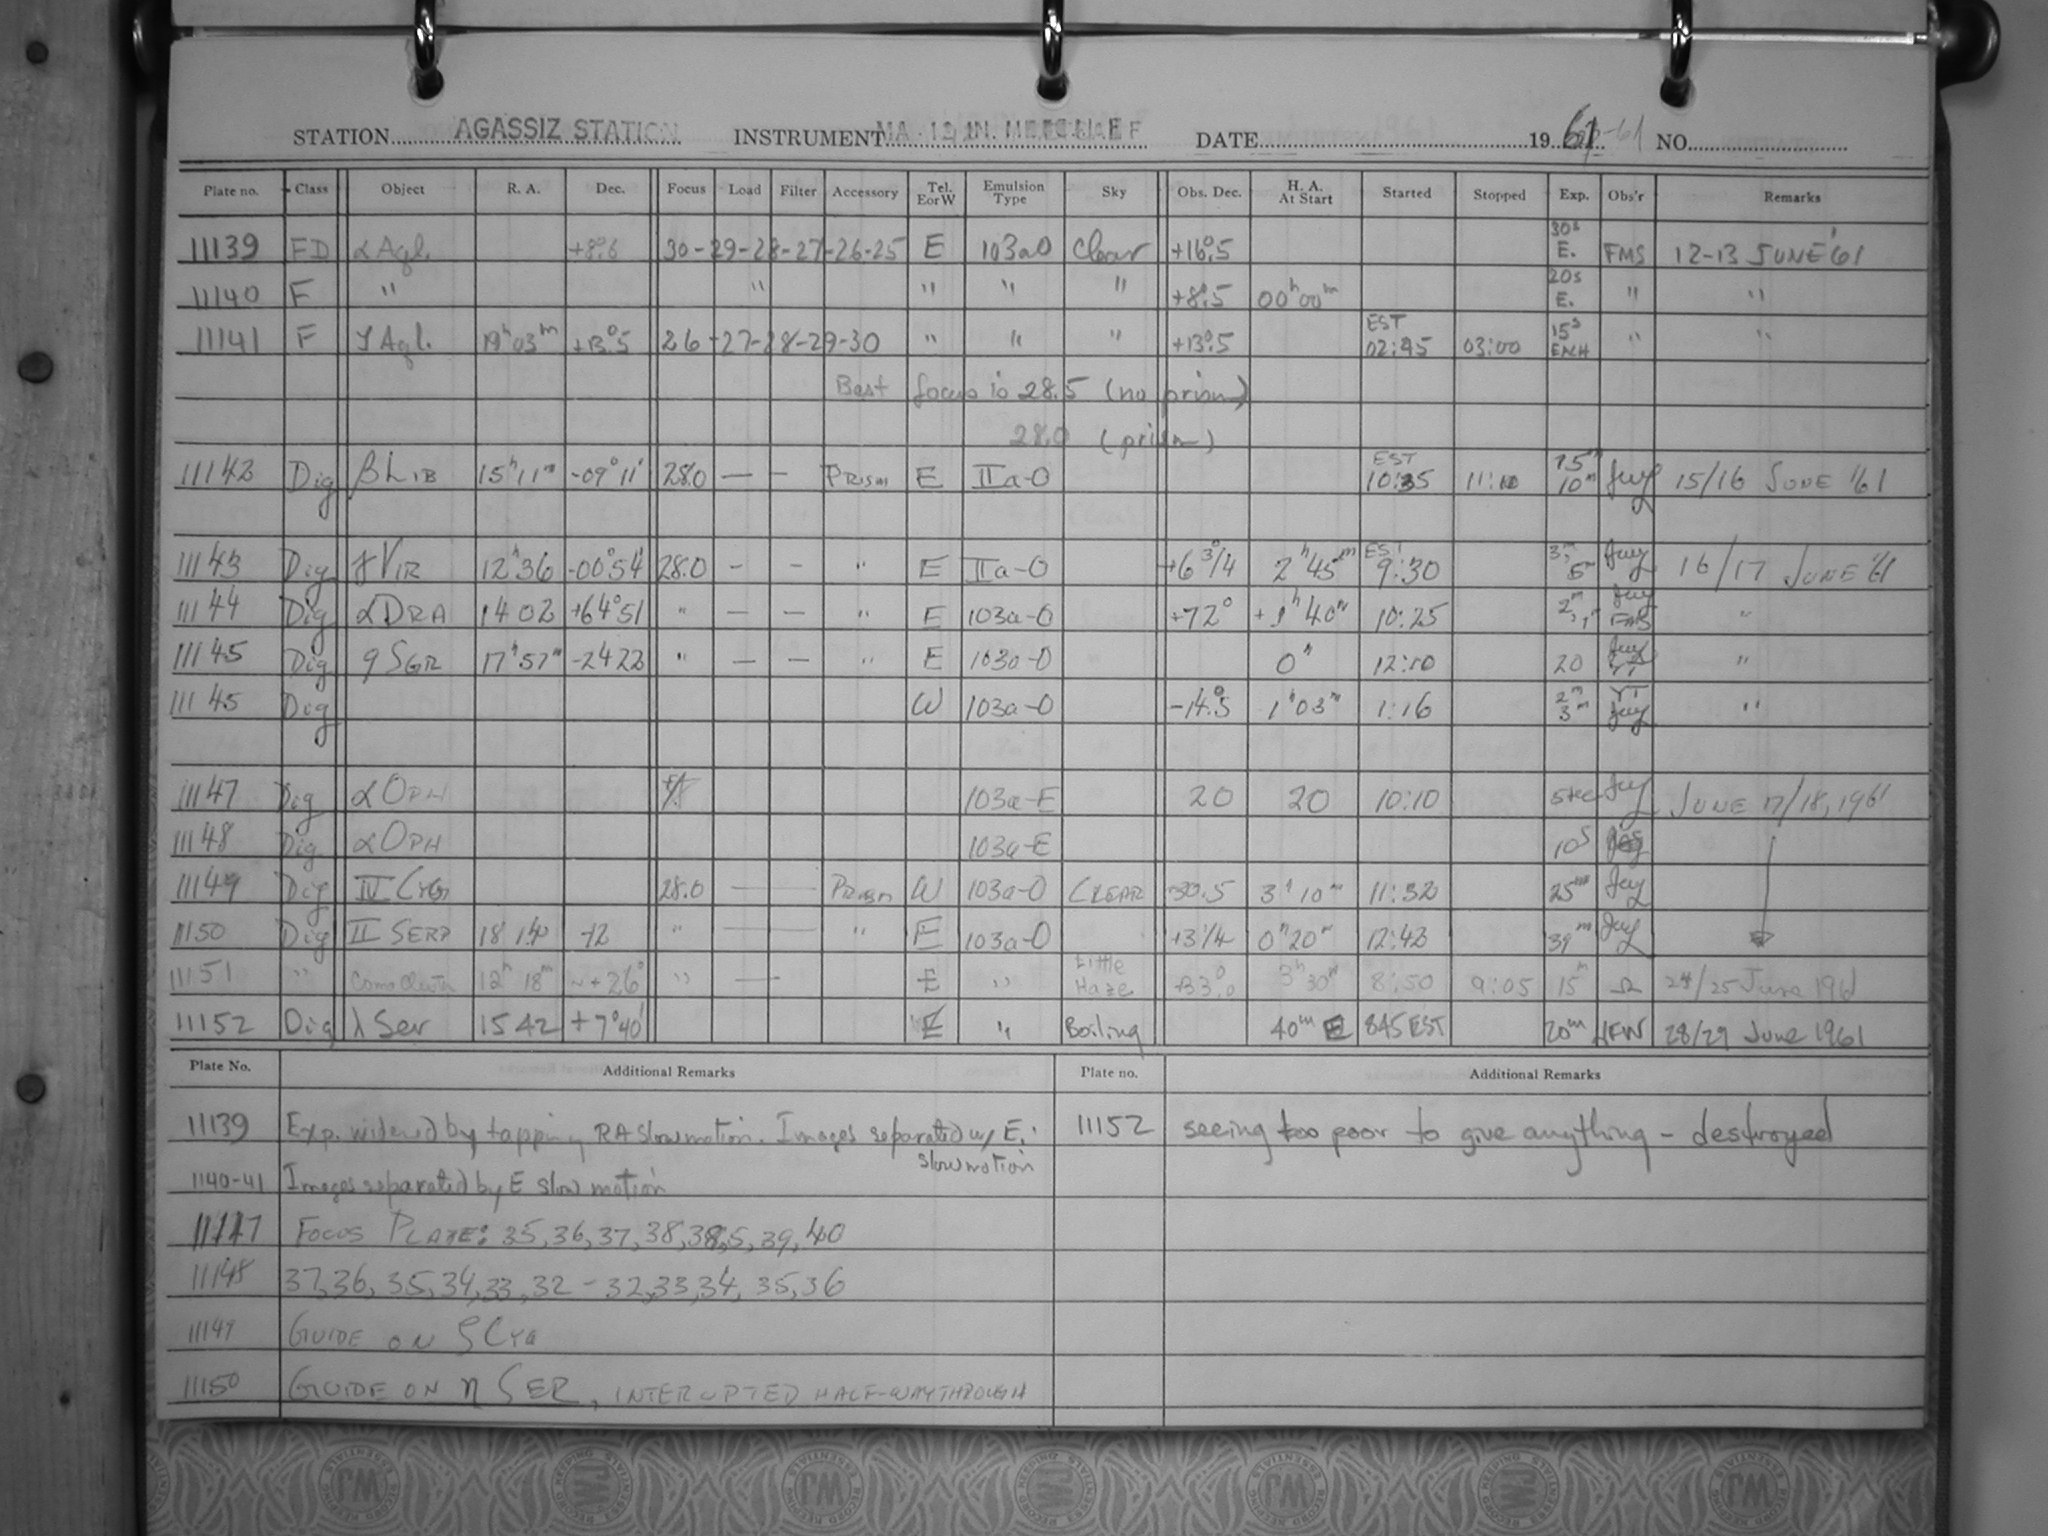 STATION AGASSIZ STATION INSTRUMENT MA - 12 IN. METCALF DATE 1961 NO.
Plate no. Class Object R. A. Dec. Focus Load Filter Accessory Tel. E or W Emulsion Type Sky Obs. Dec. H. A. At Start Started Stopped Exp. Obs'r Remarks
11139 FD α Aql. +8°.6 30-29-28-27-26-25 E 103a0 Clear +16°.5 30s E. FMS 12-13 JUNE '61
11140 F " " " " " +8°.5 00h 00m 20s E. " "
11141 F Aql. 19h 03m +13°.5 26-27-28-29-30 " " " +13°.5 EST 02:45 03:00 15s EACH " "
Best focus is 28.5 (no prism)
28.0 (prism)
11142 Dig β LIB 15h 11m -09° 11' 28.0 — — PRISM E IIa-O EST 10:35 11:10 10m 15/16 JUNE '61
11143 Dig γ VIR 12h 36 -00° 54' 28.0 - - " E IIa-O +6° 3/4 2h 45m EST 9:30 3m 5m 16/17 JUNE '61
11144 Dig α DRA 14 02 +64° 51 " — — " E 103a-O +72° +1h 40m 10:25 2m, 1m FMS "
11145 Dig 9 SGR 17h 57m -24 22 " — — " E 103a-O 0h 12:10 20 "
11145 Dig W 103a-O -14°.5 1h 03m 1:16 2m 3m "
11147 Dig α OPH 103a-E 20 20 10:10 5 sec JUNE 17/18, 1961
11148 Dig α OPH 103a-E 10s
11149 Dig IV CYG 28.0 — PRISM W 103a-O CLEAR 30.5 3h 10m 11:32 25m
11150 Dig II SERP 18 14 -12 " — " E 103a-O +3 1/4 0h 20m 12:42 39m
11151 " Coma Cluster 12h 18m ~+26° " — E " Little Haze +33° 3h 30m 8:50 9:05 15m 24/25 June 1961
11152 Dig λ Ser 15 42 +7° 40' E " Boiling 40m E 845 EST 20m 28/29 June 1961
Plate No. Additional Remarks Plate no. Additional Remarks
11139 Exp. widened by tapping RA slow motion. Images separated w/ E. 11152 seeing too poor to give anything - destroyed
slow motion
1140-41 Images separated by E slow motion
11147 FOCUS PLATE: 35, 36, 37, 38, 38.5, 39, 40
11148 37, 36, 35, 34, 33, 32 - 32, 33, 34, 35, 36
11149 GUIDE ON CYG
11150 GUIDE ON η SER, INTERUPTED HALF-WAY THROUGH